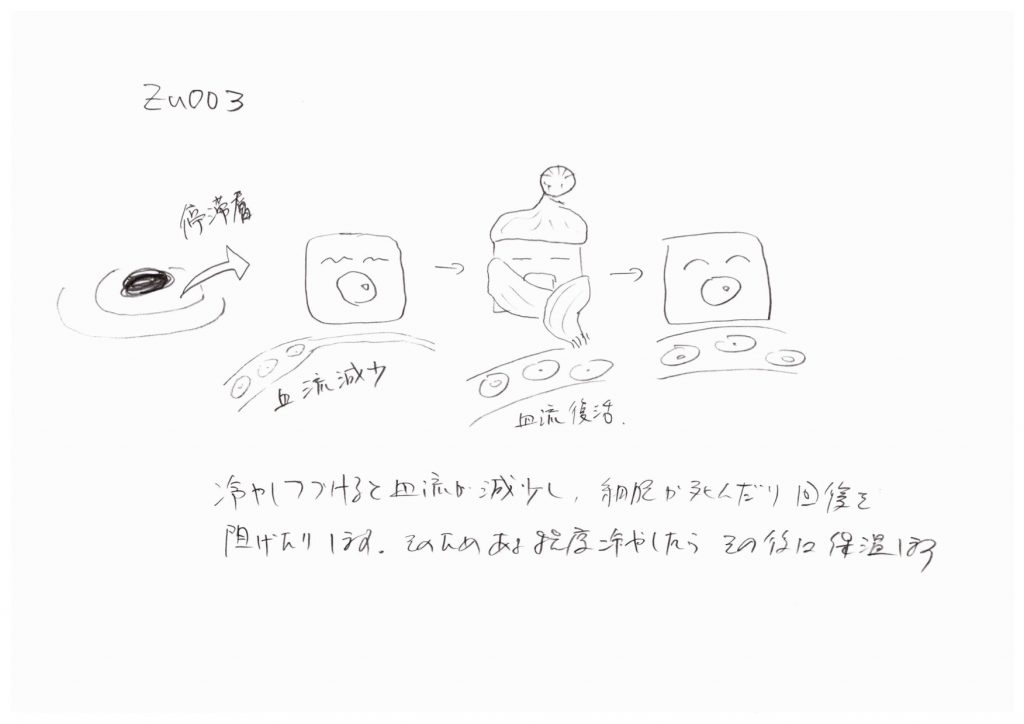 Zu003
停滞層
血流減少
血流復活.
冷やしつづけると血流が減少し、細胞が死んだり回復を
阻げたりします。そのためある程度冷やしたらその後は保温します